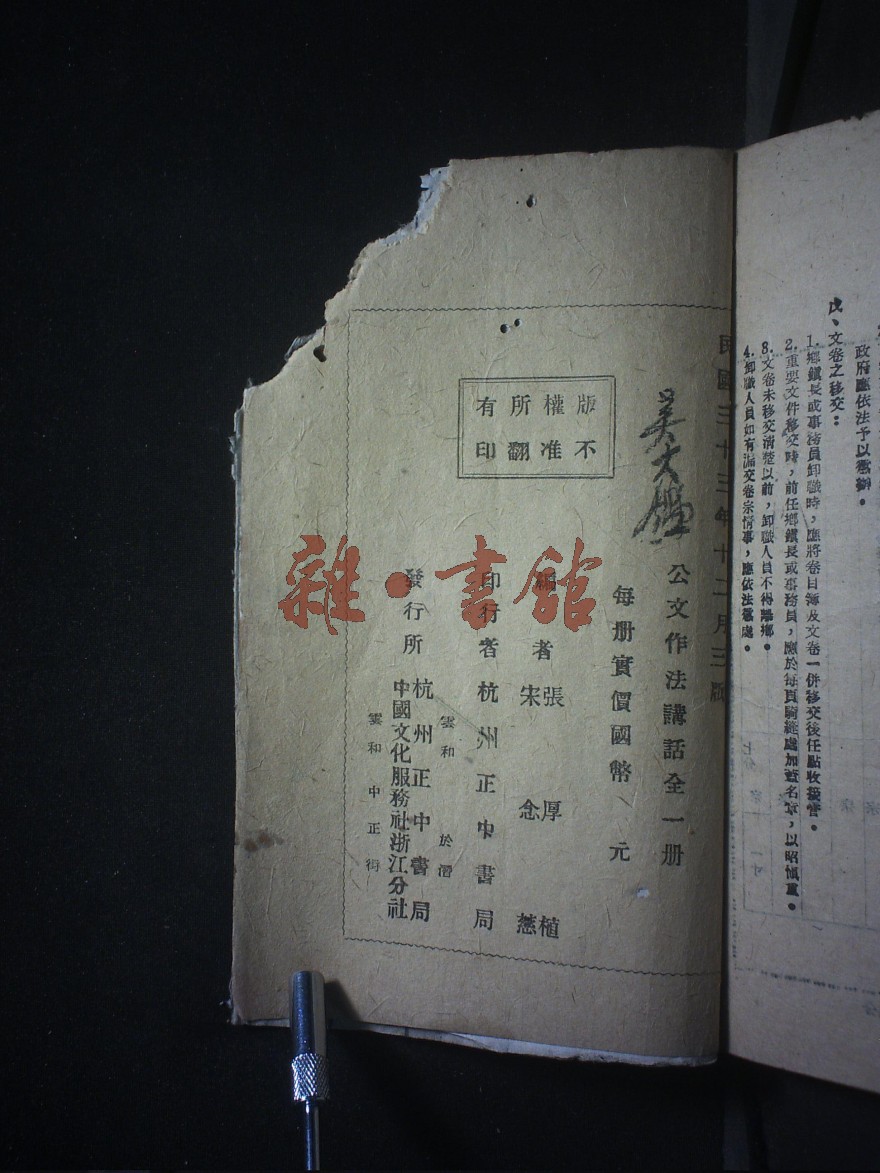 政府應依法予以懲辦。
戊、文卷之移交：
1.鄉鎮長或事務員卸職時，應將卷目簿及文卷一併移交後任點收接管。
2.重要文件移交時，前任鄉鎮長或事務員，應於每頁騎縫處加蓋名章，以昭慎重。
3.文卷未移交清楚以前，卸職人員不得離鄉。
4.卸職人員如有漏交卷宗情事，應依法懲處。
民國三十三年十二月三版
吳大
公文作法講話全一册
每册實價國幣 元
版權所有
不准翻印
編者 張厚植
宋念慈
印行者 杭州正中書局
雲和 於潛
發行所 杭州正中書局
中國文化服務社浙江分社
雲和中正街
雜·書館